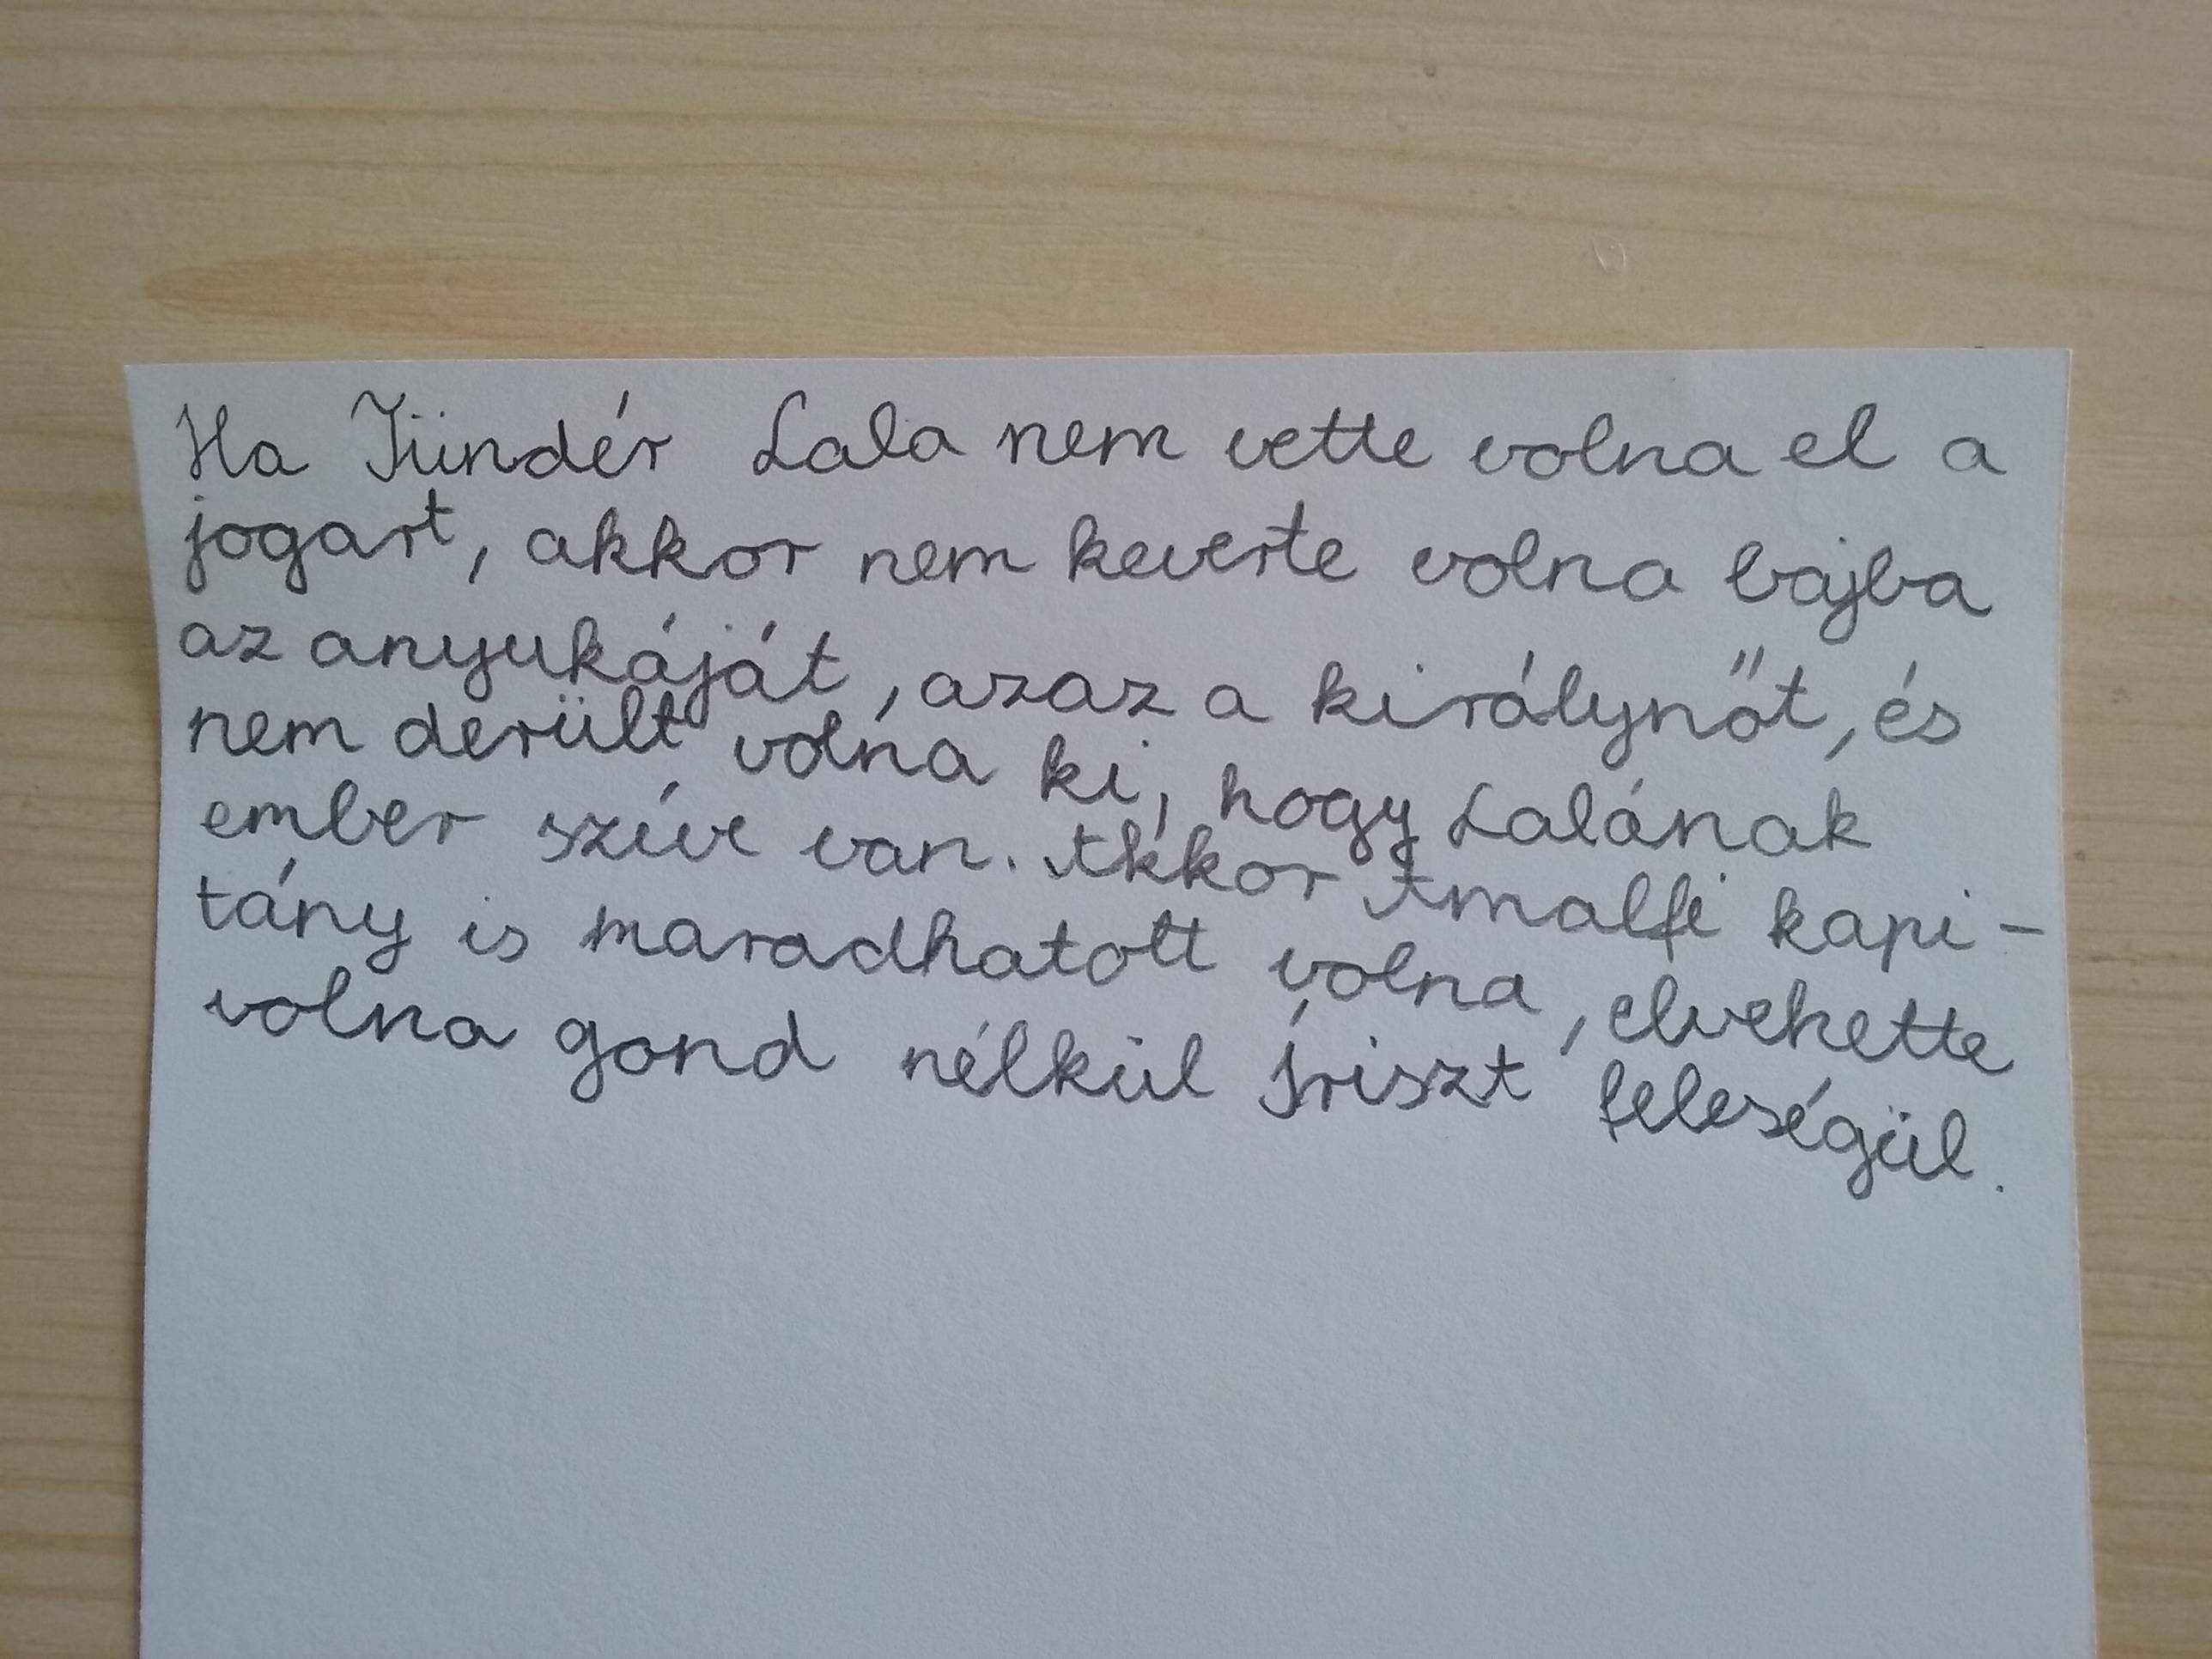 Ha Tündér Lala nem vette volna el a
jogart, akkor nem keverte volna bajba
az anyukáját, azaz a királynőt, és
nem derült volna ki, hogy Lalának
ember szíve van. Akkor Amalfi kapi-
tány is maradhatott volna, elvehette
volna gond nélkül Íriszt feleségül.